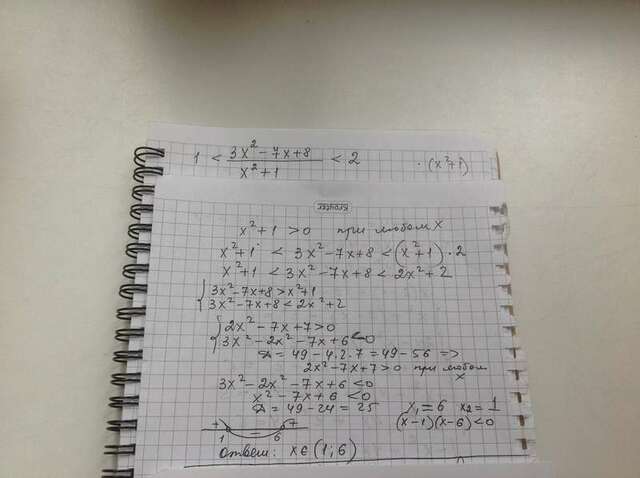 1 < (3x² - 7x + 8)/(x² + 1) < 2 · (x² + 1)
x² + 1 > 0 при любом x
x² + 1 < 3x² - 7x + 8 < (x² + 1) · 2
x² + 1 < 3x² - 7x + 8 < 2x² + 2
{ 3x² - 7x + 8 > x² + 1
3x² - 7x + 8 < 2x² + 2
{ 2x² - 7x + 7 > 0
3x² - 2x² - 7x + 6 < 0
Д = 49 - 4 · 2 · 7 = 49 - 56 =>
2x² - 7x + 7 > 0 при любом x
3x² - 2x² - 7x + 6 < 0
x² - 7x + 6 < 0
Д = 49 - 24 = 25 x₁ = 6 x₂ = 1
(x - 1)(x - 6) < 0
+ - +
1 6
Ответ: x ∈ (1; 6)